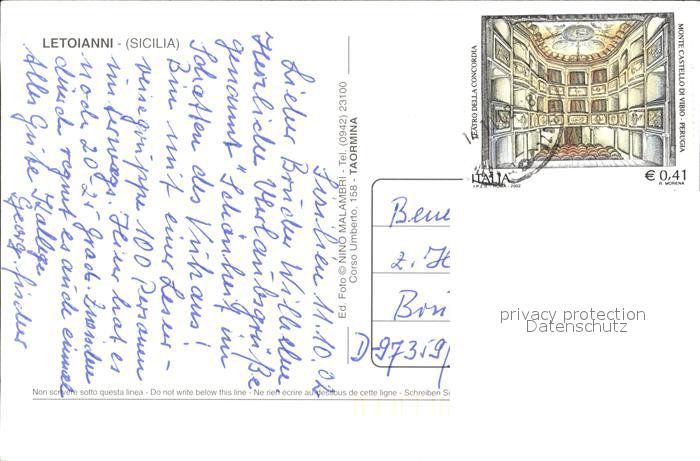 LETOIANNI - (SICILIA)
Sizilien 11.10.02
Lieber Bruder Wilhelm
Herzliche Urlaubsgrüße
genannt "Schönheit im
Schatten des Vulkans!
Bin mit einer Leser-
reisegruppe 100 Personen
unterwegs. Hier hat es
noch 20-25 Grad. Zwischen
durch regnet es auch einmal
Alles Gute Kollege
Georg Fischer
Ed. Foto © NINO MALAMBRI - Tel. (0942) 23100
Corso Umberto, 158 - TAORMINA
TEATRO DELLA CONCORDIA
MONTE CASTELLO DI VIBIO - PERUGIA
ITALIA
€ 0,41
I.P.Z.S. - ROMA - 2002
R. MORENA
Bene
z. H
Brü
D-97359
privacy protection
Datenschutz
Non scrivere sotto questa linea - Do not write below this line - Ne rien écrire au dessous de cette ligne - Schreiben Si